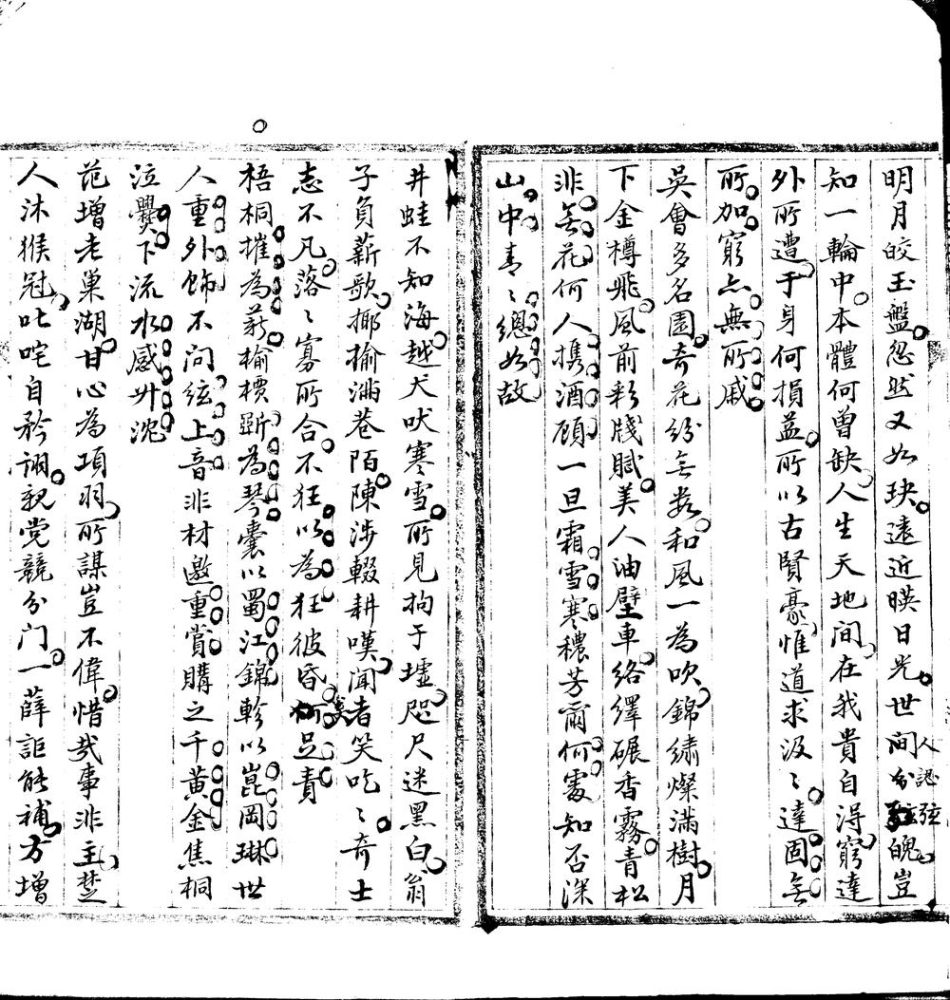 明月皎玉盤忽然又如玦遠近暎日光世間人認弦魄豈
知一輪中本體何曽缺人生天地間在我貴自淂窮達
外所遭于身何損益所以古賢豪惟道求汲〻達固無
所加窮亦無所戚
吳會多名園奇花紛無数和風一為吹錦繡燦滿樹月
下金樽飛風前彩牋賦美人油壁車絡繹碾香霧青松
非無花何人携酒顧一旦霜雪寒穠芳爾何處知否深
山中青〻總如故
井蛙不知海越犬吠寒雪所見拘于墟咫尺迷黑白翁
子負薪歌揶揄滿巷陌陳涉輟耕嘆聞者笑吃〻奇士
志不凡落〻寡所合不狂以為狂彼昏何足責
梧桐摧為薪榆檟斵為琴囊以蜀江錦軫以崑岡琳世
人重外飾不问絃上音非材邀重賞購之千黄金焦桐
泣爨下流水感升沈
范增老巢湖甘心為項羽所謀豈不偉惜哉事非主楚
人沐猴冠叱咤自矜詡親党競分门一薛詎能補方增